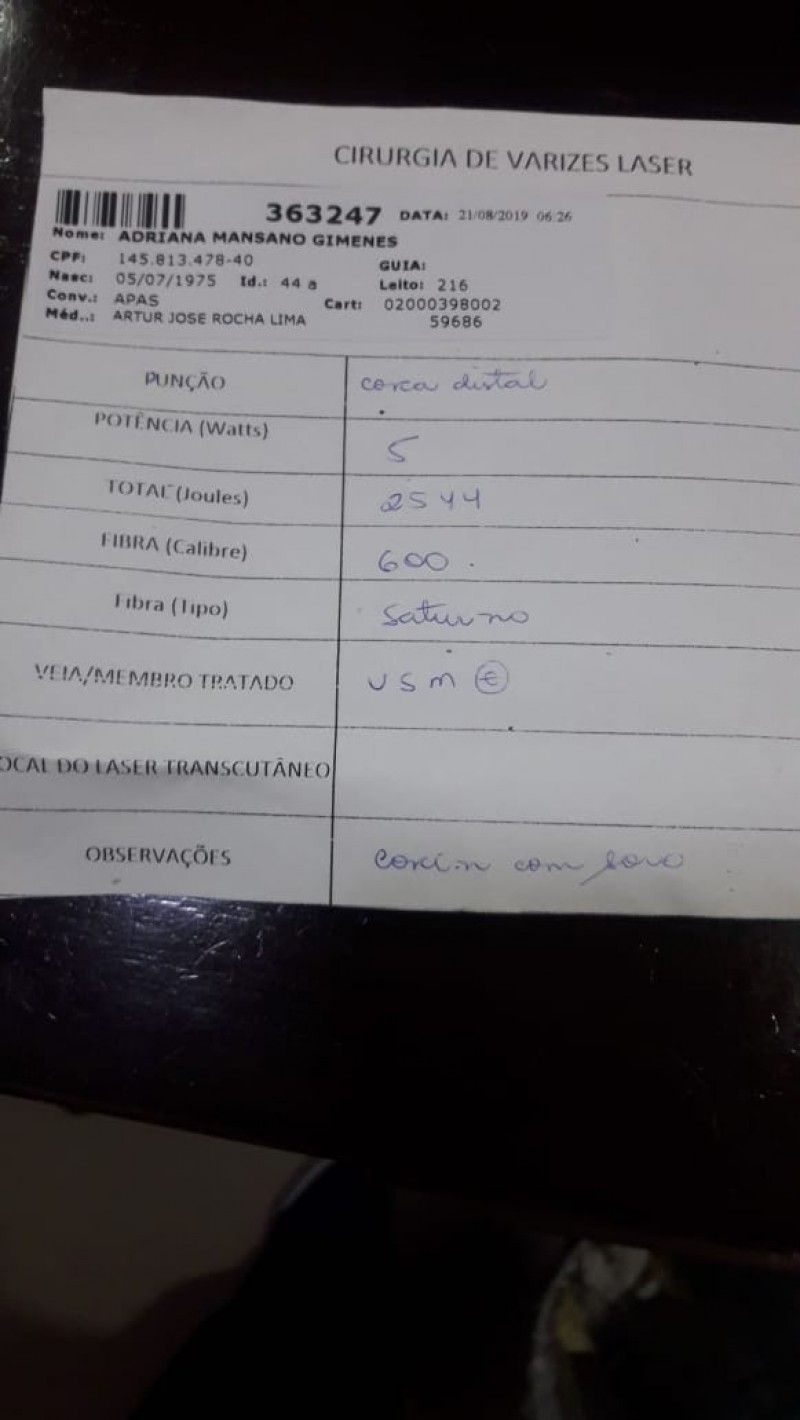 CIRURGIA DE VARIZES LASER
363247 DATA: 21/08/2019 06:26
Nome: ADRIANA MANSANO GIMENES
CPF: 145.813.478-40 GUIA:
Nasc: 05/07/1975 Id.: 44 a Leito: 216
Conv.: APAS Cart: 02000398002
Méd..: ARTUR JOSE ROCHA LIMA 59686
PUNÇÃO distal
POTÊNCIA (Watts) 5
TOTAL (Joules) 2544
FIBRA (Calibre) 600.
Fibra (Tipo) Saturno
VEIA/MEMBRO TRATADO VSM E
OCAL DO LASER TRANSCUTÂNEO
OBSERVAÇÕES com soro